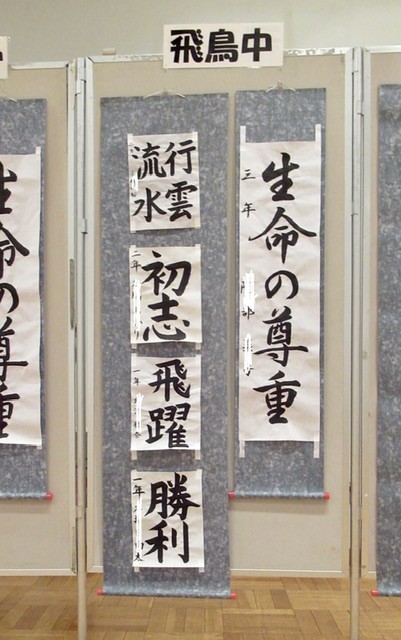 飛鳥中
生命の尊重
三年
行雲
流水
初志
二年
飛躍
一年
勝利
一年
生命の尊重